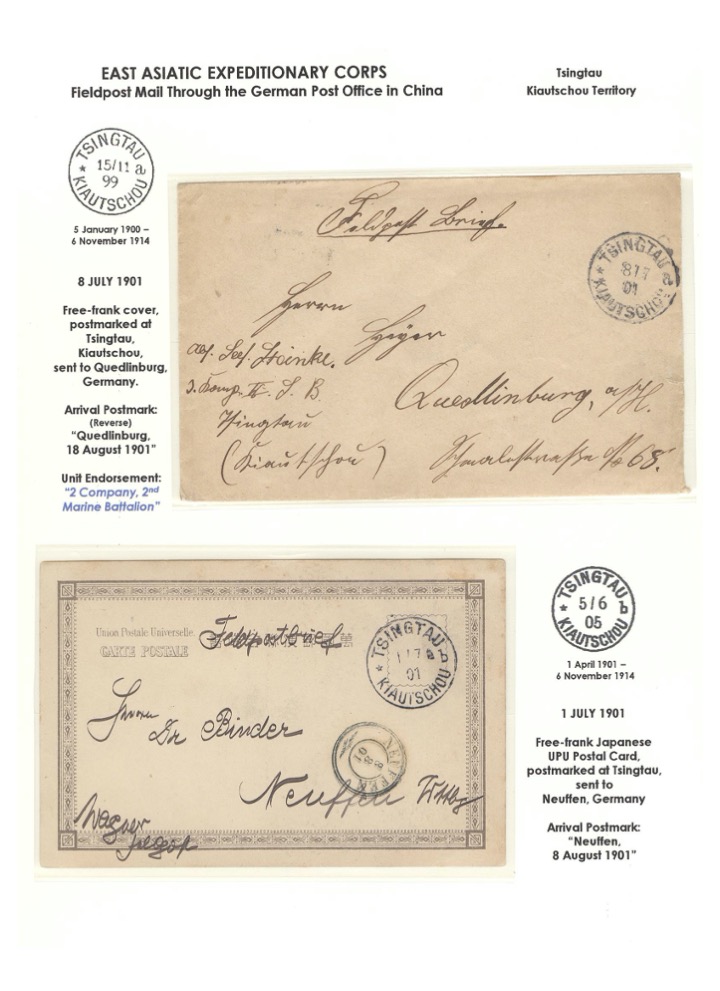 EAST ASIATIC EXPEDITIONARY CORPS
Fieldpost Mail Through the German Post Office in China
Tsingtau
Kiautschou Territory
TSINGTAU
* 15/11 a
99
KIAUTSCHOU
5 January 1900 –
6 November 1914
8 JULY 1901
Free-frank cover,
postmarked at
Tsingtau,
Kiautschou,
sent to Quedlinburg,
Germany.
Arrival Postmark:
(Reverse)
"Quedlinburg,
18 August 1901"
Unit Endorsement:
"2 Company, 2nd
Marine Battalion"
Feldpost Brief.
TSINGTAU
* 8/7 a
01
KIAUTSCHOU
Herrn
Heyer
Quedlinburg, a/H.
Schmalestraße No 68.
Abs. Sees. Steinke.
Komp. S. B.
Tsingtau
(Kiautschou)
Union Postale Universelle.
CARTE POSTALE
Feldpostbrief
TSINGTAU
* 1/7 b
01
KIAUTSCHOU
Herrn
Dr Binder
Neuffen Wttbg
NEUFFEN
8 8
01
Wagner
TSINGTAU
* 5/6 b
05
KIAUTSCHOU
1 April 1901 –
6 November 1914
1 JULY 1901
Free-frank Japanese
UPU Postal Card,
postmarked at Tsingtau,
sent to
Neuffen, Germany
Arrival Postmark:
"Neuffen,
8 August 1901"